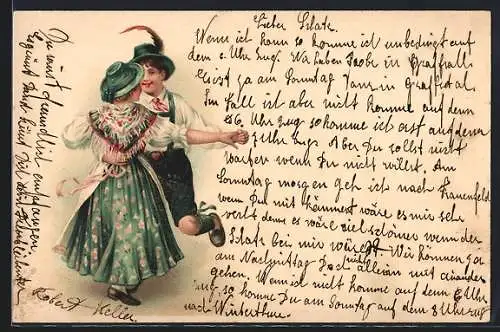 Lieber Schatz.
Wenn ich kann so komme ich unbedingt auf
dem 6 Uhr Zug. Wir haben Probe in
Es ist ja am Sonntag Tanz in
Im Fall ich aber nicht komme auf den
6 Uhr Zug so komme ich erst auf den
7 Uhr Zug. Aber Du sollst nicht
warten wenn Du nicht willst. Am
Sonntag morgen geh ich nach Frauenfeld
wenn Du mit kämmest wäre es mir sehr
recht denn es wäre viel schöner wenn der
Schatz bei mir wäre. Wir können ja
am Nachmittag doch nicht allein mit einander
gehen. Wenn ich nicht komme auf den 7 Uhr
zug so komme Du am Sonntag auf dem 8 Uhr zug
nach Winterthur.
Du wirst freundlich empfangen
Robert Keller